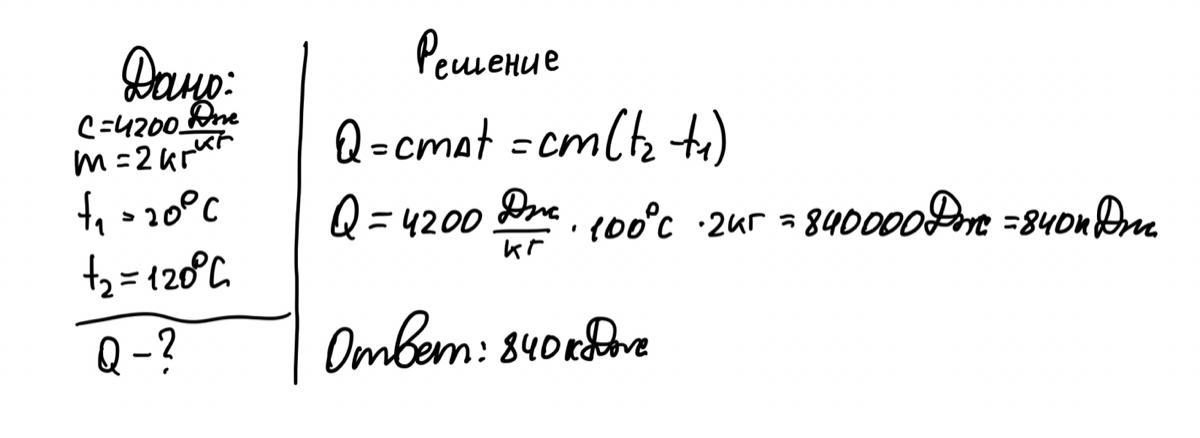 Дано:
c = 4200 Дж/кг
m = 2 кг
t₁ = 20°C
t₂ = 120°C
Q - ?
Решение
Q = cmΔt = cm(t₂ - t₁)
Q = 4200 Дж/кг · 100°C · 2кг = 840000 Дж = 840кДж
Ответ: 840кДж